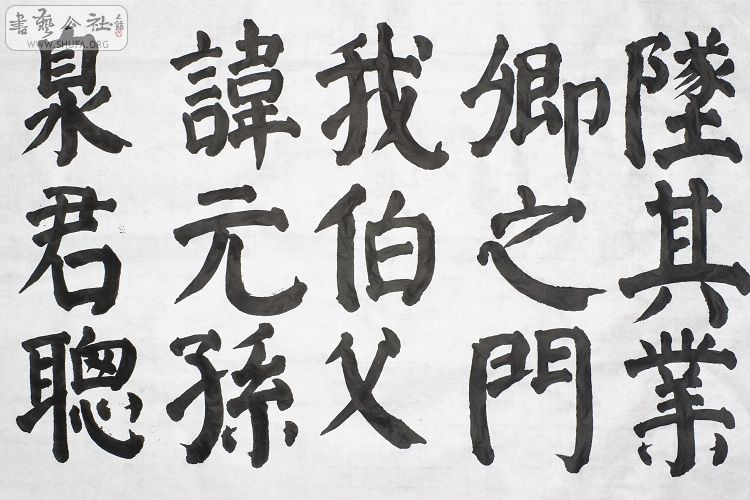 墜其業
卿之門
我伯父
諱元孫
泉君聰
書藝公社
WWW.SHUFA.ORG